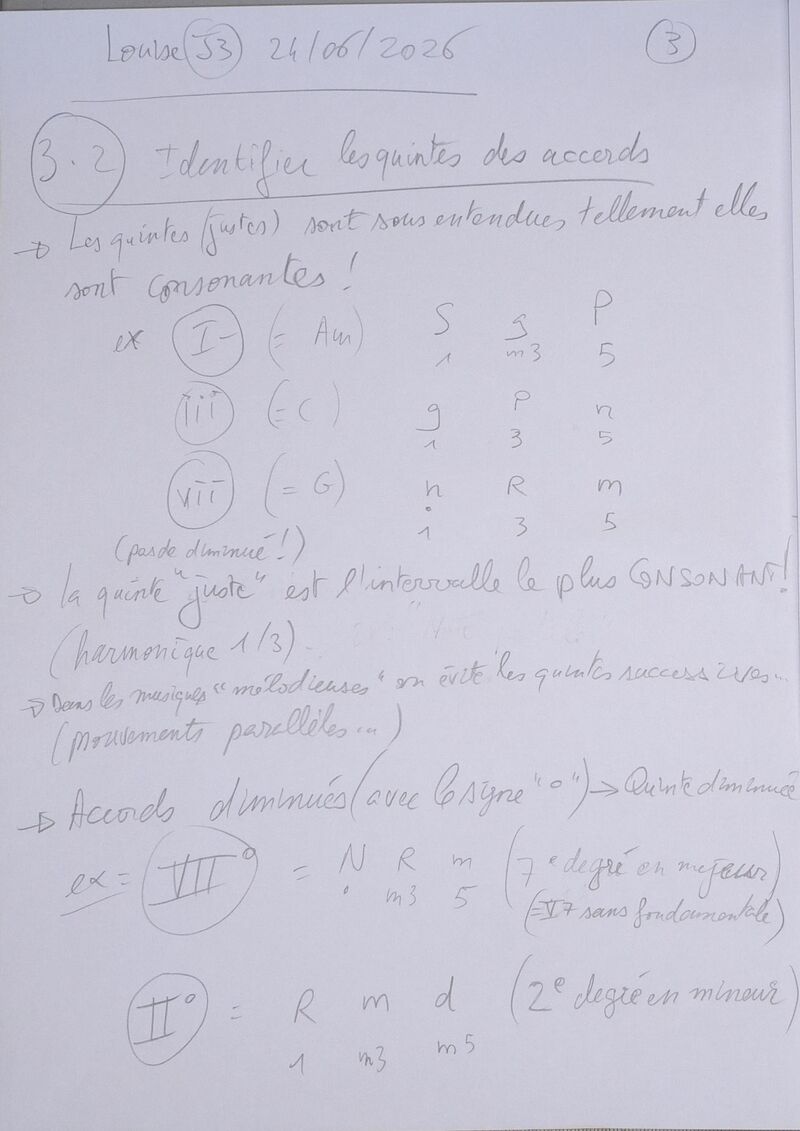 Louise J3 24/06/2026 3
3.2 Identifier les quintes des accords
→ Les quintes (justes) sont sous entendues tellement elles
sont consonantes !
ex I- (= Am) S g P
1 m3 5
iii (= C) g P n
1 3 5
vii (= G) n R m
1 3 5
(pas de diminué !)
→ la quinte "juste" est l'intervalle le plus CONSONANT !
(harmonique 1/3).
→ Dans les musiques "mélodieuses" on évite les quintes successives...
(mouvements parallèles...)
→ Accords diminués (avec le signe "o") → Quinte diminuée
ex = VII° = N R m (7e degré en majeur)
m3 5 (=V7 sans fondamentale)
II° = R m d (2e degré en mineur)
1 m3 m5